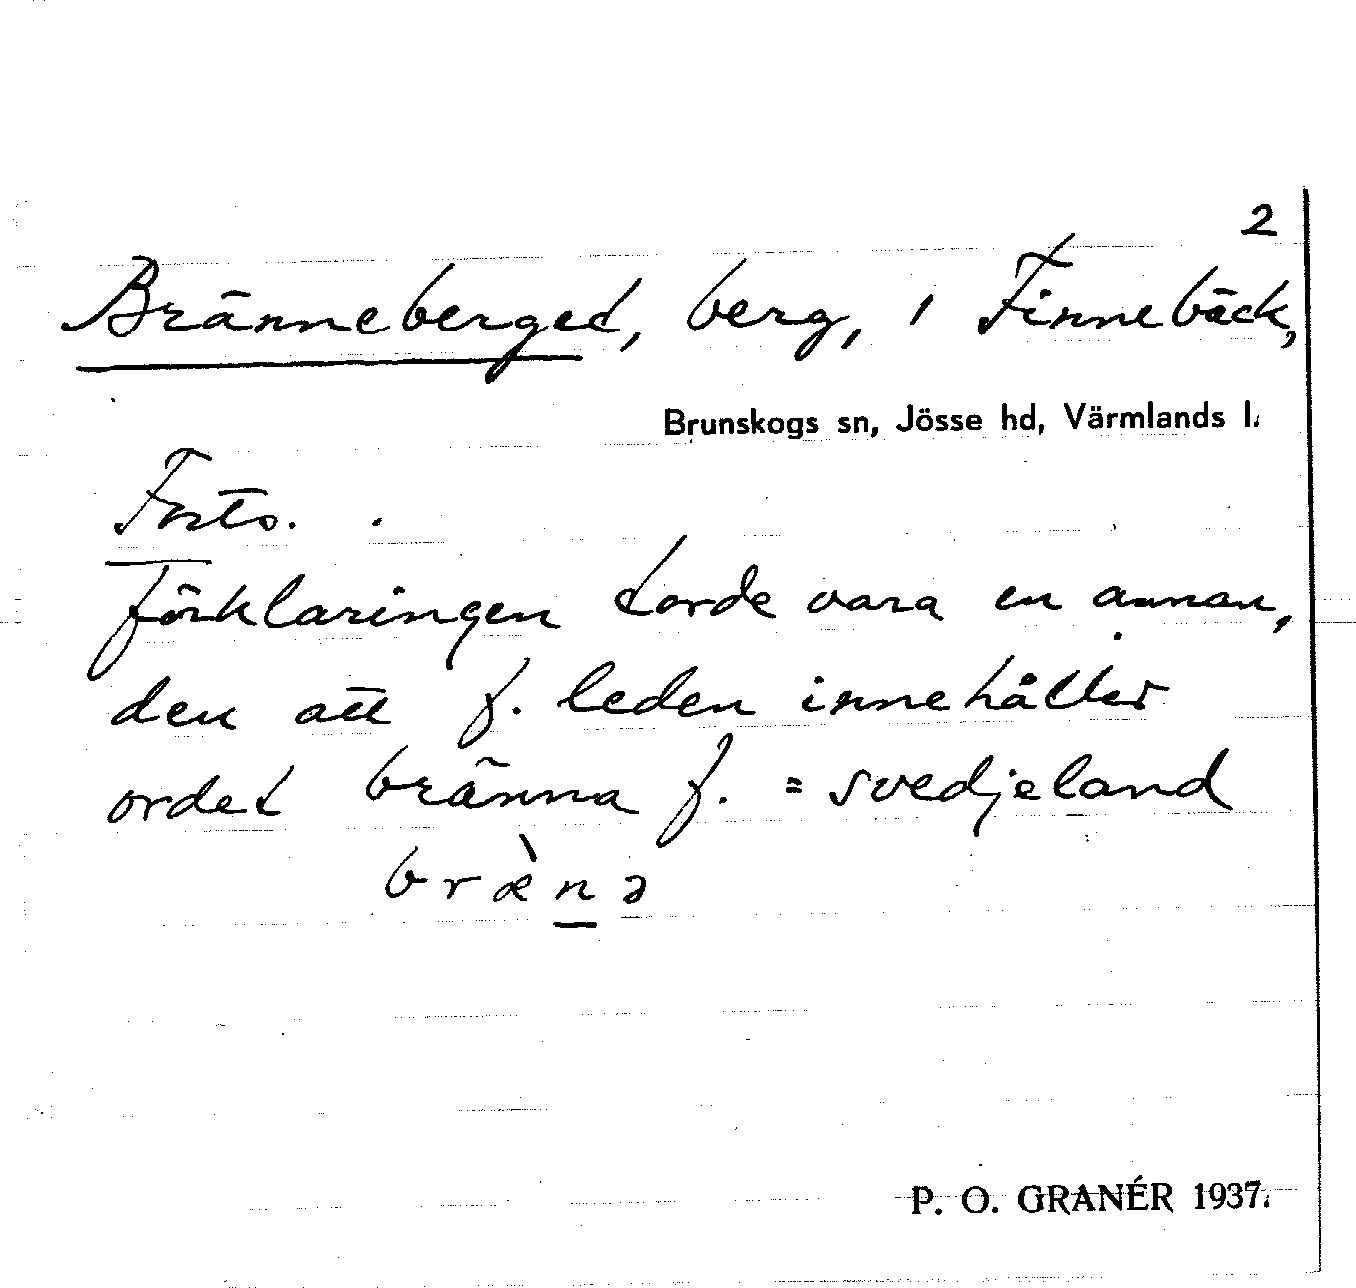 2
Bränneberget, berg, i Finnebäck,
Brunskogs sn, Jösse hd, Värmlands l.
Forts.
Förklaringen torde vara en annan,
den att f. leden innehåller
ordet bränna f. = svedjeland
bræ̀n̲ə
P. O. GRANÉR 1937.